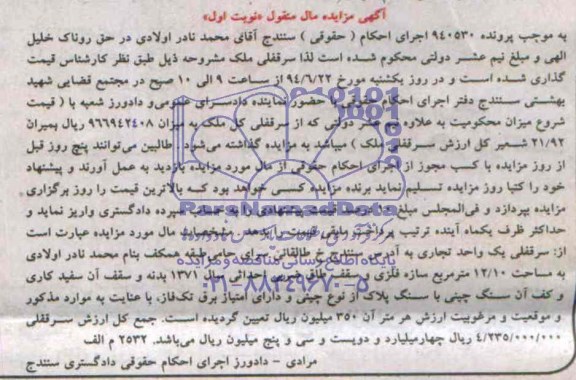 آگهی مزایده مال منقول «نوبت اول»
به موجب پرونده ۹۴۰۵۳۰ اجرای احکام ( حقوقی ) سنندج آقای محمد نادر اولادی در حق روناک خلیل
الهی و مبلغ نیم عشر دولتی محکوم شده است لذا سرقفلی ملک مشروحه ذیل طبق نظر کارشناس قیمت
گذاری شده است و در روز یکشنبه مورخ ۹۴/۶/۲۲ از ساعت ۹ الی ۱۰ صبح در مجتمع قضایی شهید
بهشتی سنندج دفتر اجرای احکام حقوقی با حضور نماینده دادسرای عمومی و دادورز شعبه با ( قیمت
شروع میزان محکومیت به علاوه نیم عشر دولتی که از سرقفلی کل ملک به میزان ۹۶۶۹۴۲۴۰۸ ریال بمیران
۲۱/۹۲ شعیر کل ارزش سرقفلی ملک ) میباشد به مزایده گذاشته می‌شود طالبین می‌توانند پنج روز قبل
از روز مزایده با کسب مجوز از اجرای احکام حقوقی از مال مورد مزایده بازدید به عمل آورند و پیشنهاد
خود را کتبا روز مزایده تسلیم نماید برنده مزایده کسی خواهد بود که بالاترین قیمت را روز برگزاری
مزایده بپردازد و فی‌المجلس مبلغ پیشنهادی را به حساب سپرده دادگستری واریز نماید و
حداکثر ظرف یکماه آینده ترتیب پرداخت مابقی قیمت را بدهد. مشخصات مال مورد مزایده عبارت است
از: سرقفلی یک واحد تجاری به آدرس سنندج خ طالقانی همکف بنام محمد نادر اولادی
به مساحت ۱۲/۱۰ مترمربع سازه فلزی و سقف طاق ضربی احداثی سال ۱۳۷۱ بدنه و سقف آن سفید کاری
و کف آن سنگ چینی با سنگ پلاک از نوع چینی و دارای امتیاز برق تک‌فاز، با عنایت به موارد مذکور
و موقعیت و مرغوبیت ارزش هر متر آن ۳۵۰ میلیون ریال تعیین گردیده است. جمع کل ارزش سرقفلی
۴/۲۳۵/۰۰۰/۰۰۰ ریال چهارمیلیارد و دویست و سی و پنج میلیون ریال می‌باشد. ۲۵۳۲ م الف
مرادی - دادورز اجرای احکام حقوقی دادگستری سنندج
ParsNamadData
پایگاه اطلاع رسانی مناقصه و مزایده
۰۲۱-۸۸۳۴۹۶۷۰-۵